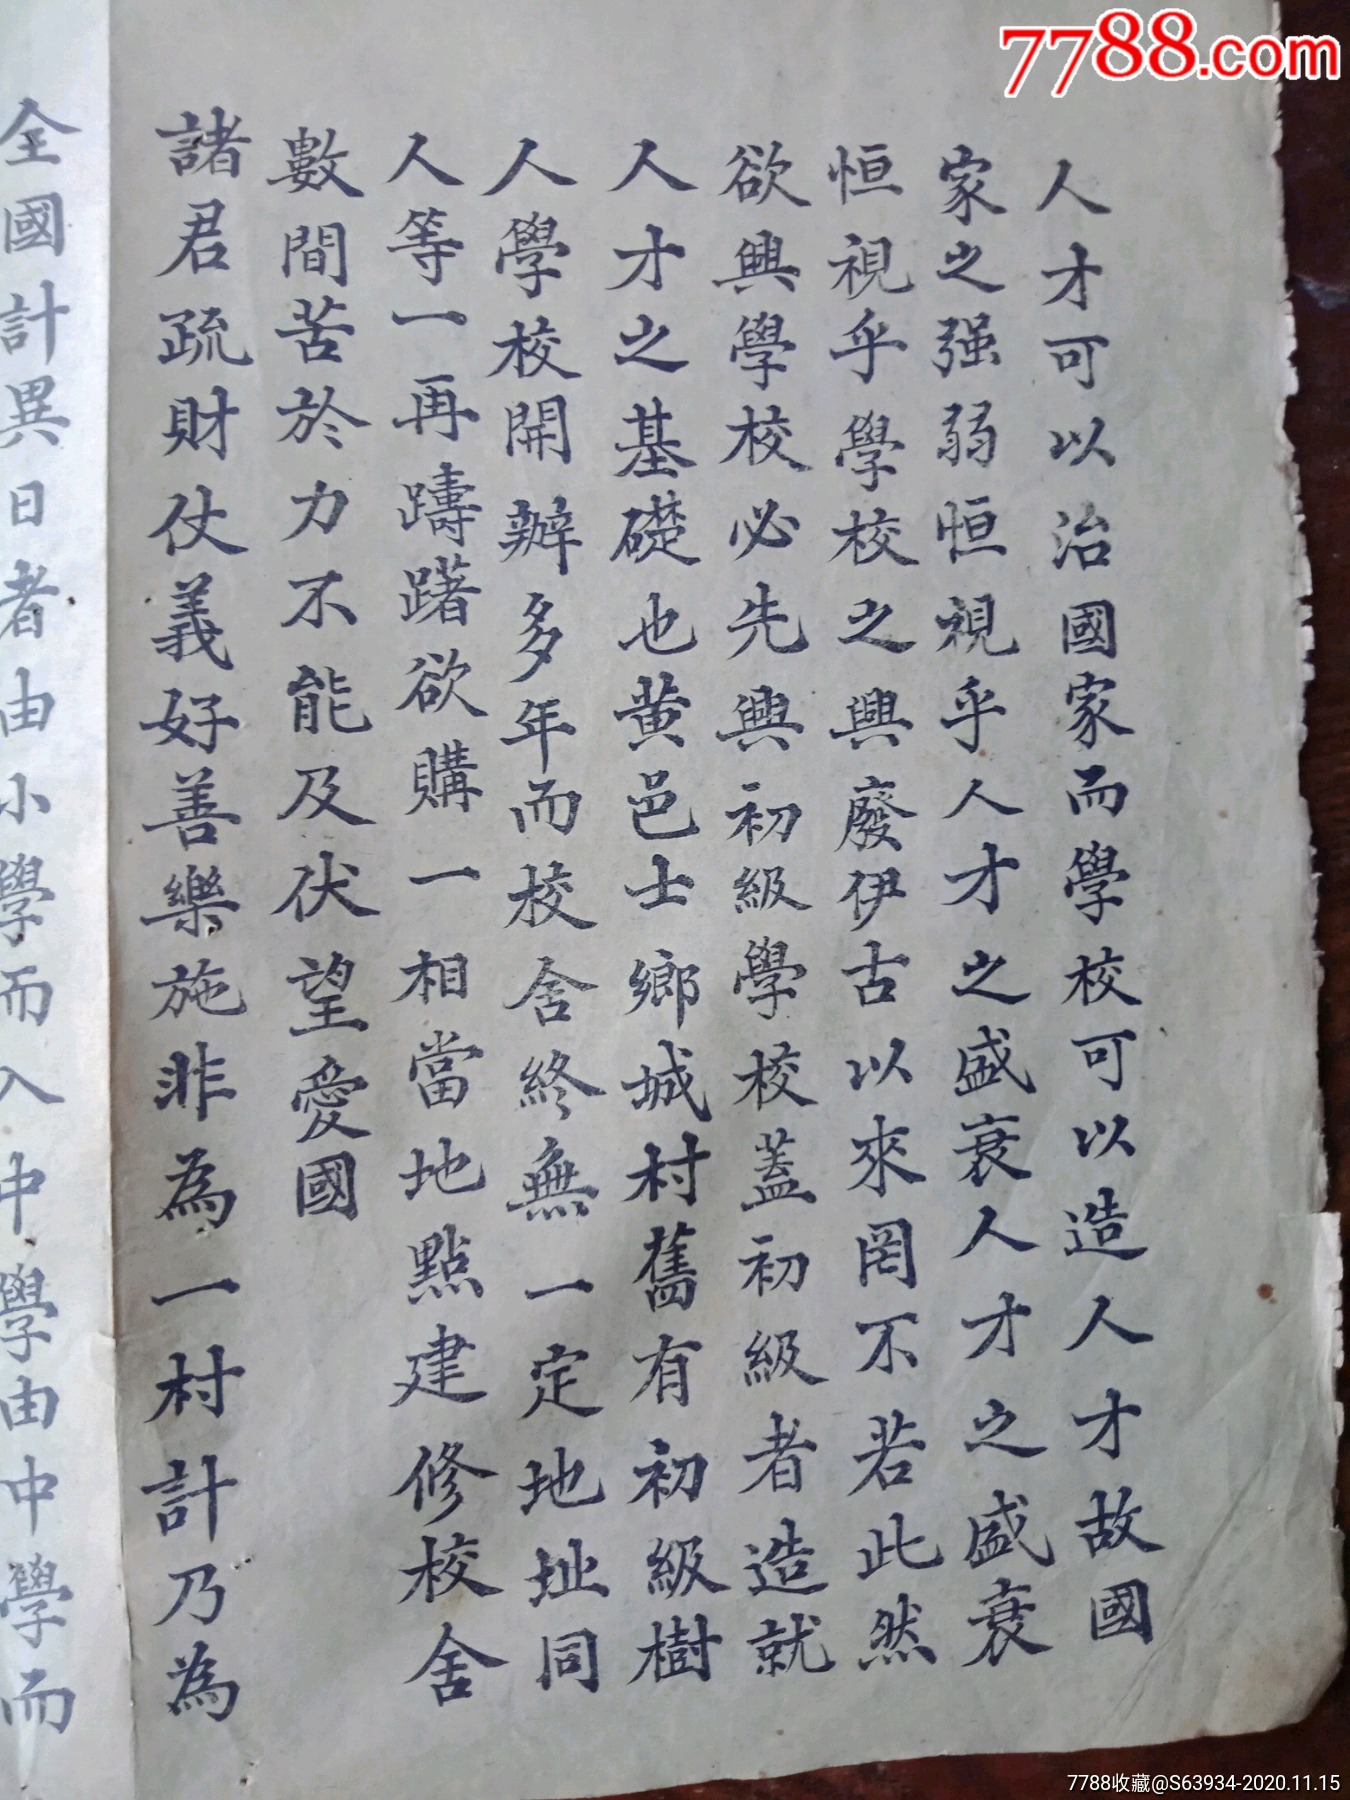 7788.com
人才可以治國家而學校可以造人才故國
家之强弱恒視乎人才之盛衰人才之盛衰
恒視乎學校之興廢伊古以來罔不若此然
欲興學校必先興初級學校蓋初級者造就
人才之基礎也黄邑士鄉城村舊有初級樹
人學校開辦多年而校舍終無一定地址同
人等一再躊躇欲購一相當地點建修校舍
數間苦於力不能及伏望愛國
諸君疏財仗義好善樂施非為一村計乃為
全國計異日者由小學而入中學由中學而
7788收藏@S63934-2020.11.15